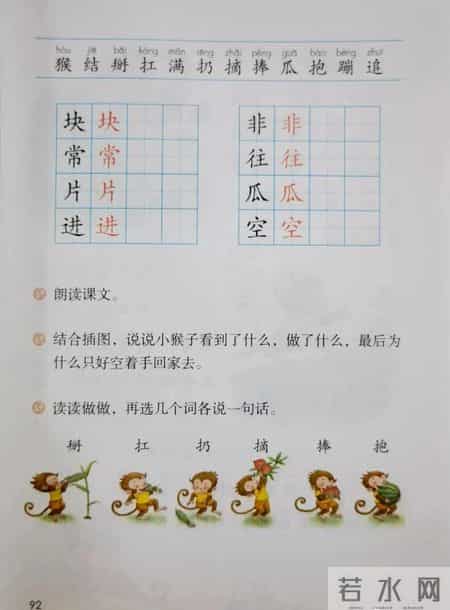 hóu jiē bāi káng mǎn rēng zhāi pěng guā bào bèng zhuī
猴 结 掰 扛 满 扔 摘 捧 瓜 抱 蹦 追
块 块 非 非
常 常 往 往
片 片 瓜 瓜
进 进 空 空
朗读课文。
结合插图，说说小猴子看到了什么，做了什么，最后为
什么只好空着手回家去。
读读做做，再选几个词各说一句话。
掰 扛 扔 摘 捧 抱
92
若水网